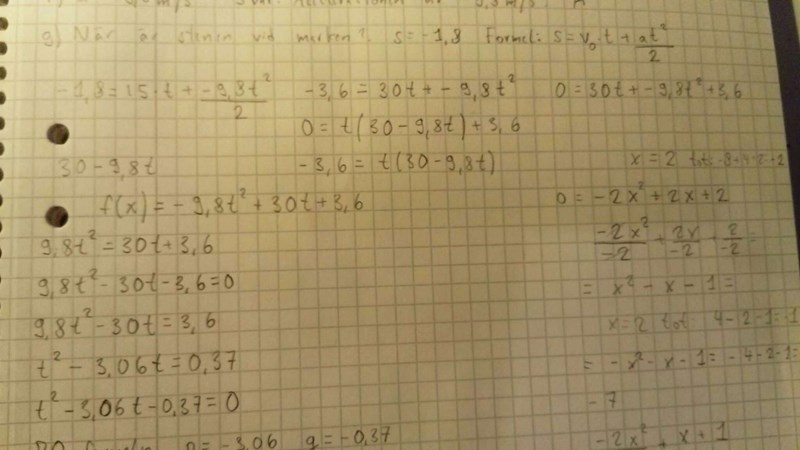 g) När är stenen vid marken? s = -1,8 Formel: s = v₀·t + at²/2
-1,8 = 15·t + -9,8t²/2
-3,6 = 30t + -9,8t²
0 = 30t + -9,8t² + 3,6
0 = t(30 - 9,8t) + 3,6
30 - 9,8t
-3,6 = t(30 - 9,8t)
x = 2 tot: -8+4+2=-2
f(x) = -9,8t² + 30t + 3,6
0 = -2x² + 2x + 2
9,8t² = 30t + 3,6
-2x²/-2 + 2x/-2 + 2/-2 =
9,8t² - 30t - 3,6 = 0
= x² - x - 1 =
9,8t² - 30t = 3,6
x = 2 tot: 4-2-1=1
t² - 3,06t = 0,37
= -x² - x - 1 = -4-2-1=
t² - 3,06t - 0,37 = 0
-7
p = -3,06 q = -0,37
-2x² + x + 1